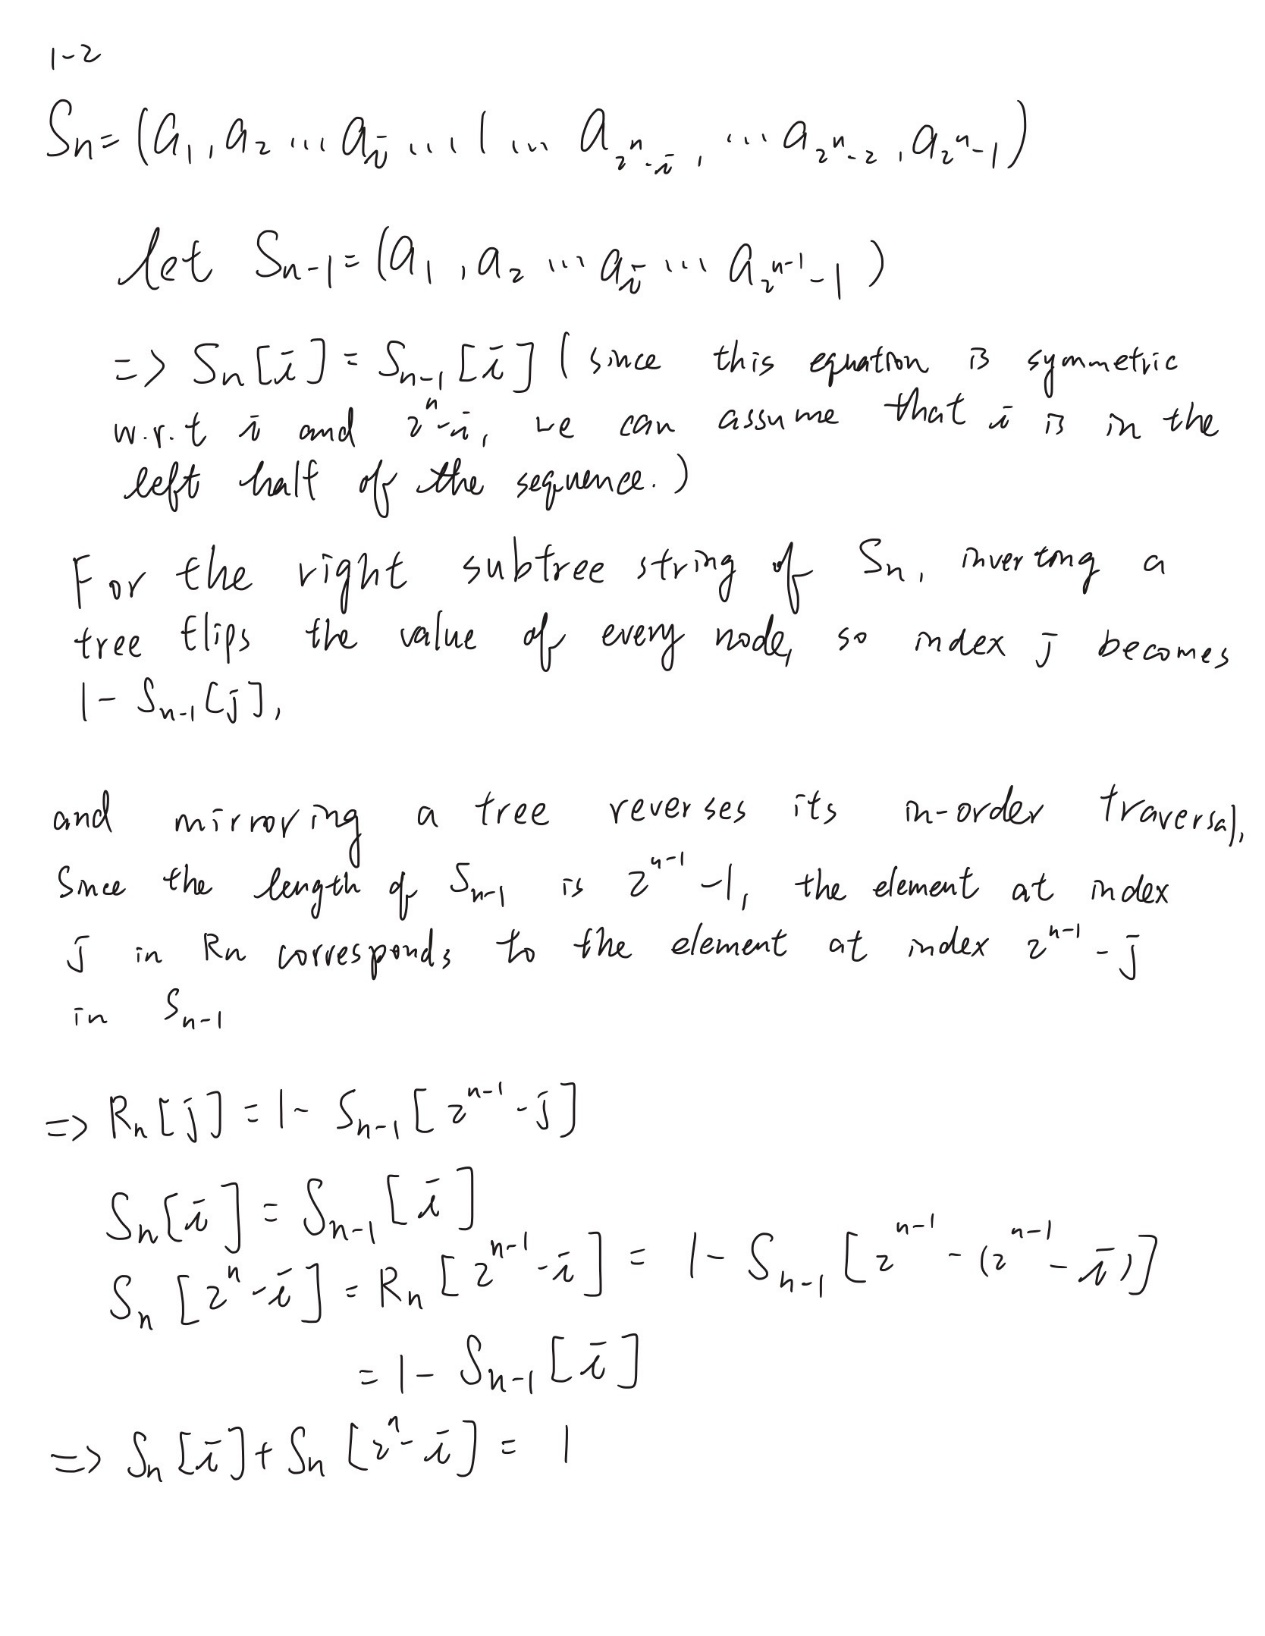 1-2
Sn=(a₁,a₂ ... aᵢ ... 1 ... a_{2ⁿ-i}, ... a_{2ⁿ-2}, a_{2ⁿ-1})
let Sn-1=(a₁,a₂ ... aᵢ ... a_{2ⁿ⁻¹-1})
=> Sn[i]=Sn-1[i] (since this equation is symmetric
w.r.t i and 2ⁿ-i, we can assume that i is in the
left half of the sequence.)
For the right subtree string of Sn, inverting a
tree flips the value of every node, so index j becomes
1-Sn-1[j],
and mirroring a tree reverses its in-order traversal,
Since the length of Sn-1 is 2ⁿ⁻¹-1, the element at index
j in Rn corresponds to the element at index 2ⁿ⁻¹-j
in Sn-1
=> Rn[j]=1-Sn-1[2ⁿ⁻¹-j]
Sn[i]=Sn-1[i]
Sn[2ⁿ-i]=Rn[2ⁿ⁻¹-i]=1-Sn-1[2ⁿ⁻¹-(2ⁿ⁻¹-i)]
=1-Sn-1[i]
=> Sn[i]+Sn[2ⁿ-i]=1